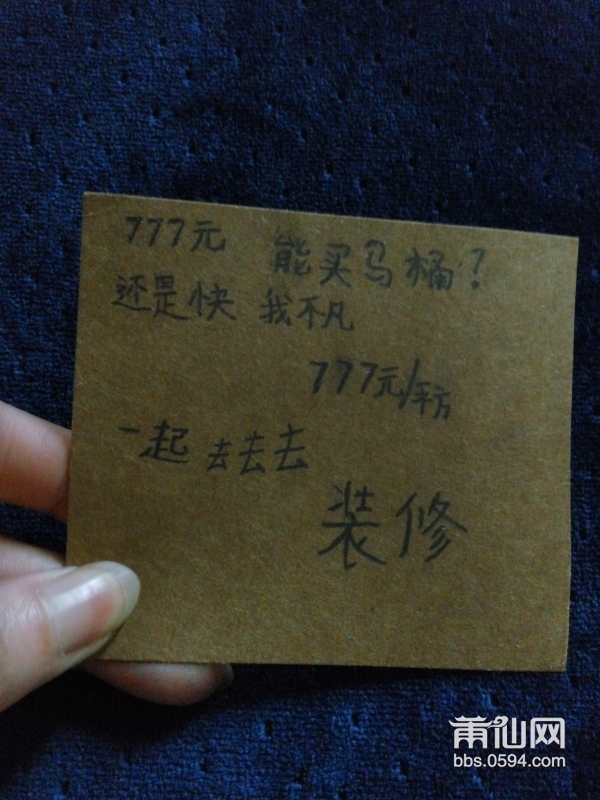 777元 能买马桶?
还是快 我不凡
777元/平方
一起去去去
装修
莆仙网
bbs.0594.com